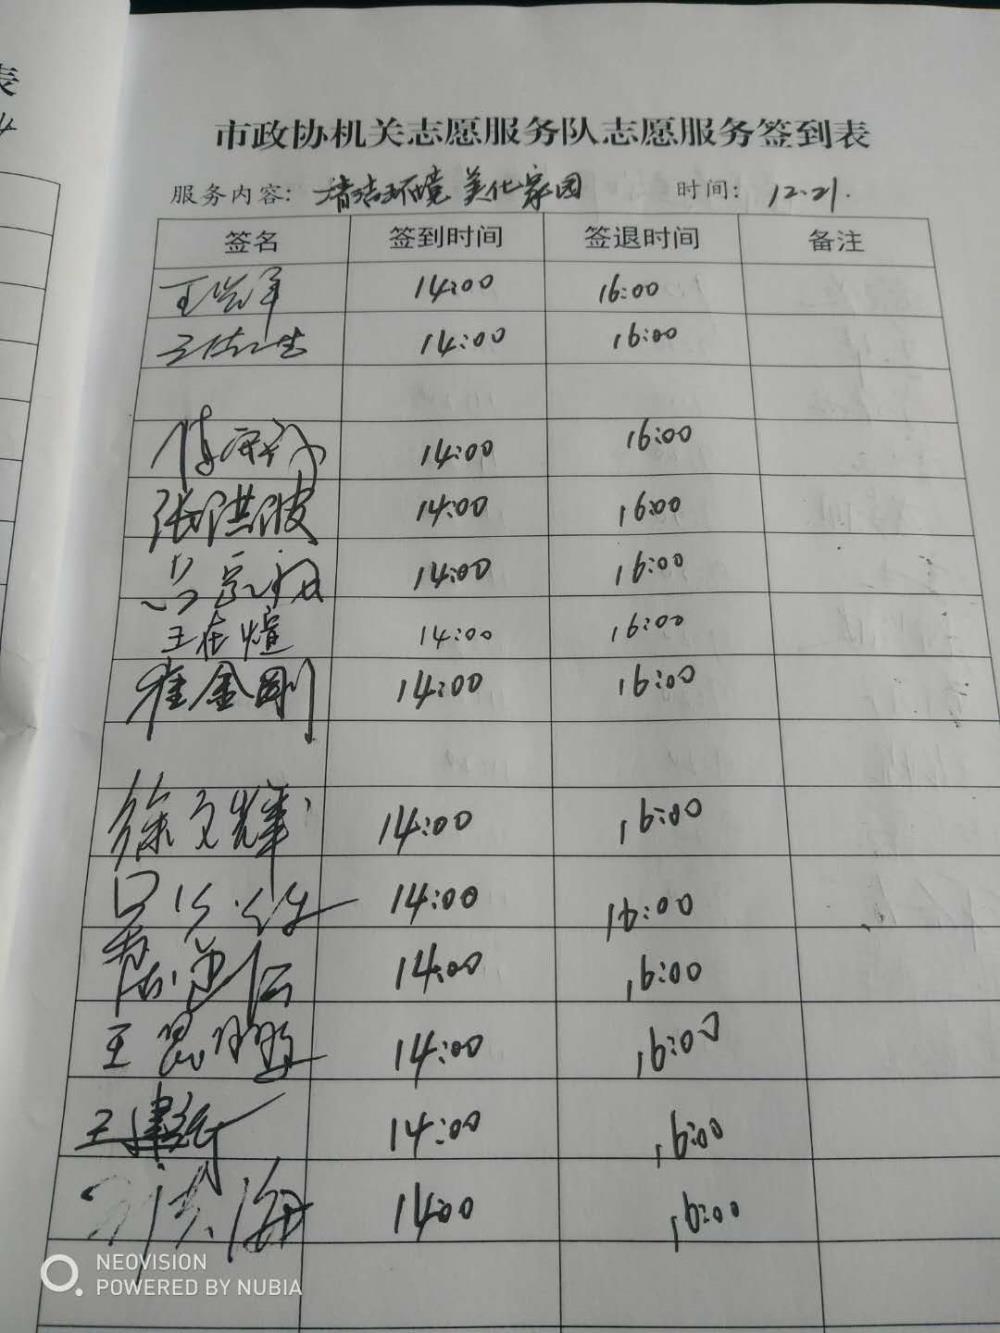 表
市政协机关志愿服务队志愿服务签到表
服务内容: 清洁环境 美化家园 时间: 12.21.
签名 签到时间 签退时间 备注
14:00 16:00
14:00 16:00
14:00 16:00
张洪波 14:00 16:00
14:00 16:00
王在煊 14:00 16:00
崔金刚 14:00 16:00
徐文辉 14:00 16:00
14:00 16:00
14:00 16:00
王 14:00 16:00
王建 14:00 16:00
海 14:00 16:00
NEOVISION
POWERED BY NUBIA